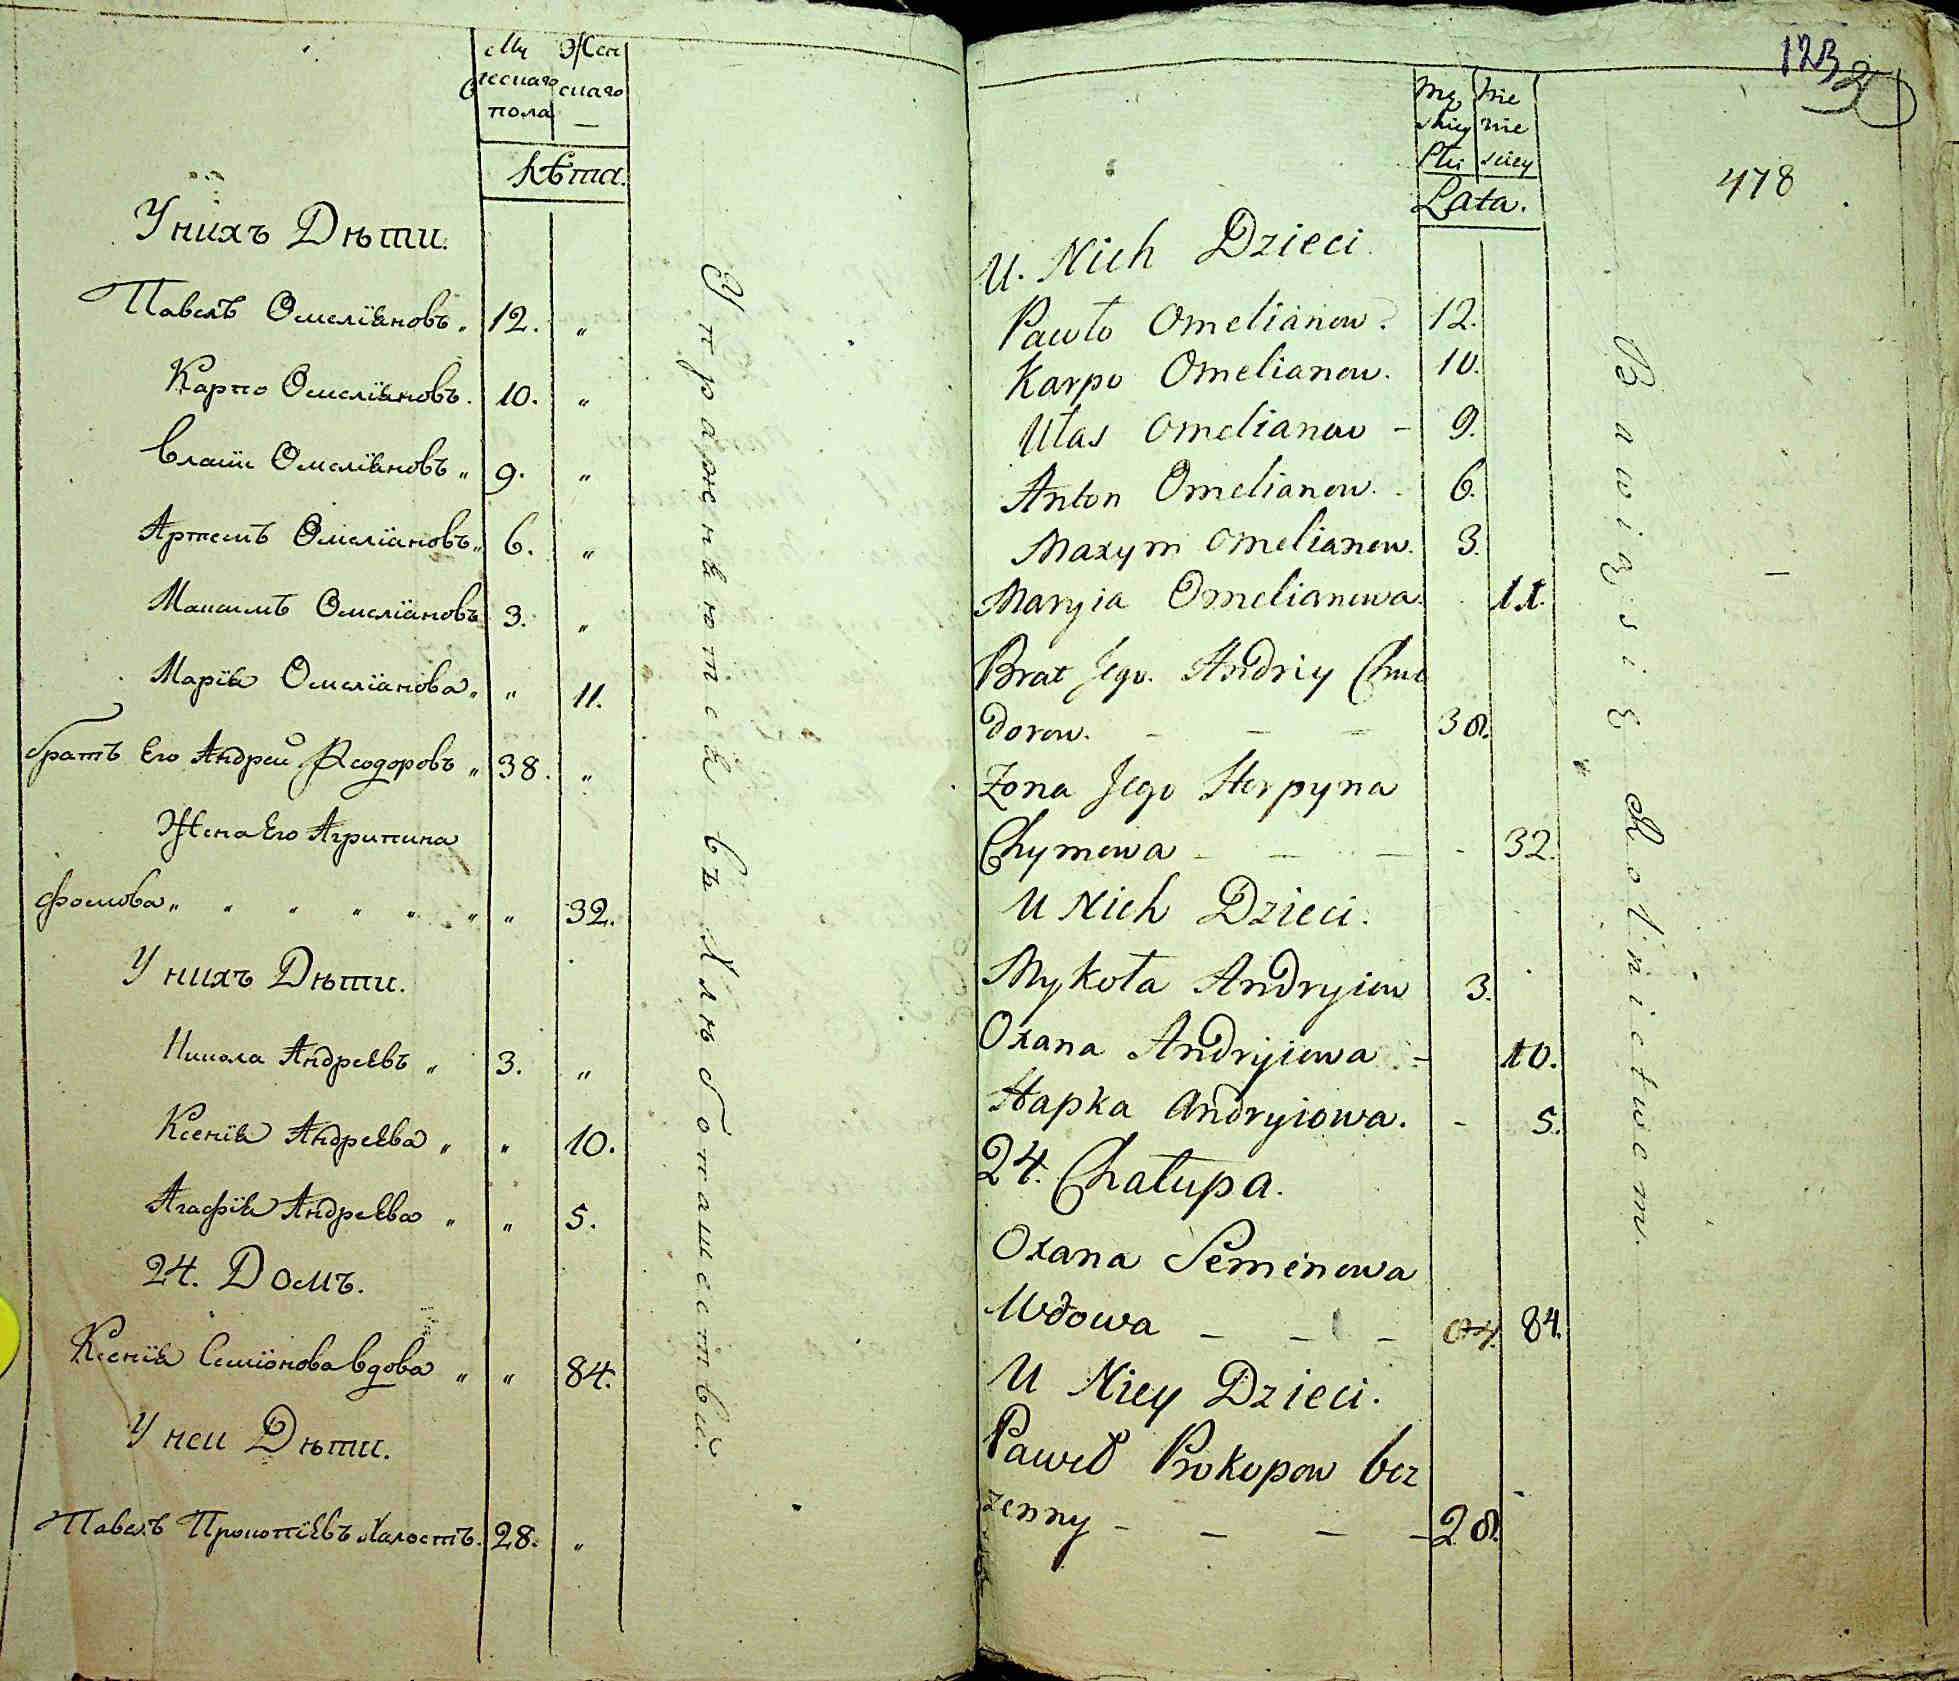 Му Жен
жескаго скаго
пола
Лѣта.
У нихъ Дѣти.
Павелъ Омеліяновъ. 12. „
Карпо Омеліяновъ. 10. „
Власій Омеліяновъ „ 9. „
Артемъ Омеліановъ „ 6. „
Максимъ Омеліановъ 3. „
Марія Омеліанова „ „ 11.
братъ Его Андрей Феодоровъ „ 38. „
Жена Его Агрипина
Фомова „ „ „ „ „ „ „ 32.
У нихъ Дѣти.
Никола Андреевъ „ 3. „
Ксенія Андреева „ „ 10.
Агафія Андреева „ „ 5.
24. Домъ.
Ксенія Семіонова вдова „ „ 84.
У неи Дѣти.
Павелъ Прокопіевъ Халостъ. 28. „
Упражняются въ Хлѣбопашествѣ.
123
478
Mę Nie
skiey wie
Płci sciey
Lata.
U. Nich Dzieci.
Pawło Omelianow. 12.
Karpo Omelianow. 10.
Ułas Omelianow - 9.
Anton Omelianow. 6.
Maxym Omelianow. 3.
Maryia Omelianowa. 11.
Brat Jego. Andriy Chwe
dorow. - - - 38.
Zona Jego Horpyna
Chymowa - - - - 32.
U Nich Dzieci.
Mykoła Andryiow 3.
Oxana Andryiowa - 10.
Hapka Andryiowa. - 5.
24. Chałupa.
Oxana Semenowa
Wdowa - - - 84. 84.
U Niey Dzieci.
Paweł Prokopow bez
zenny - - - - 28.
Bawią się Rolnictwem.